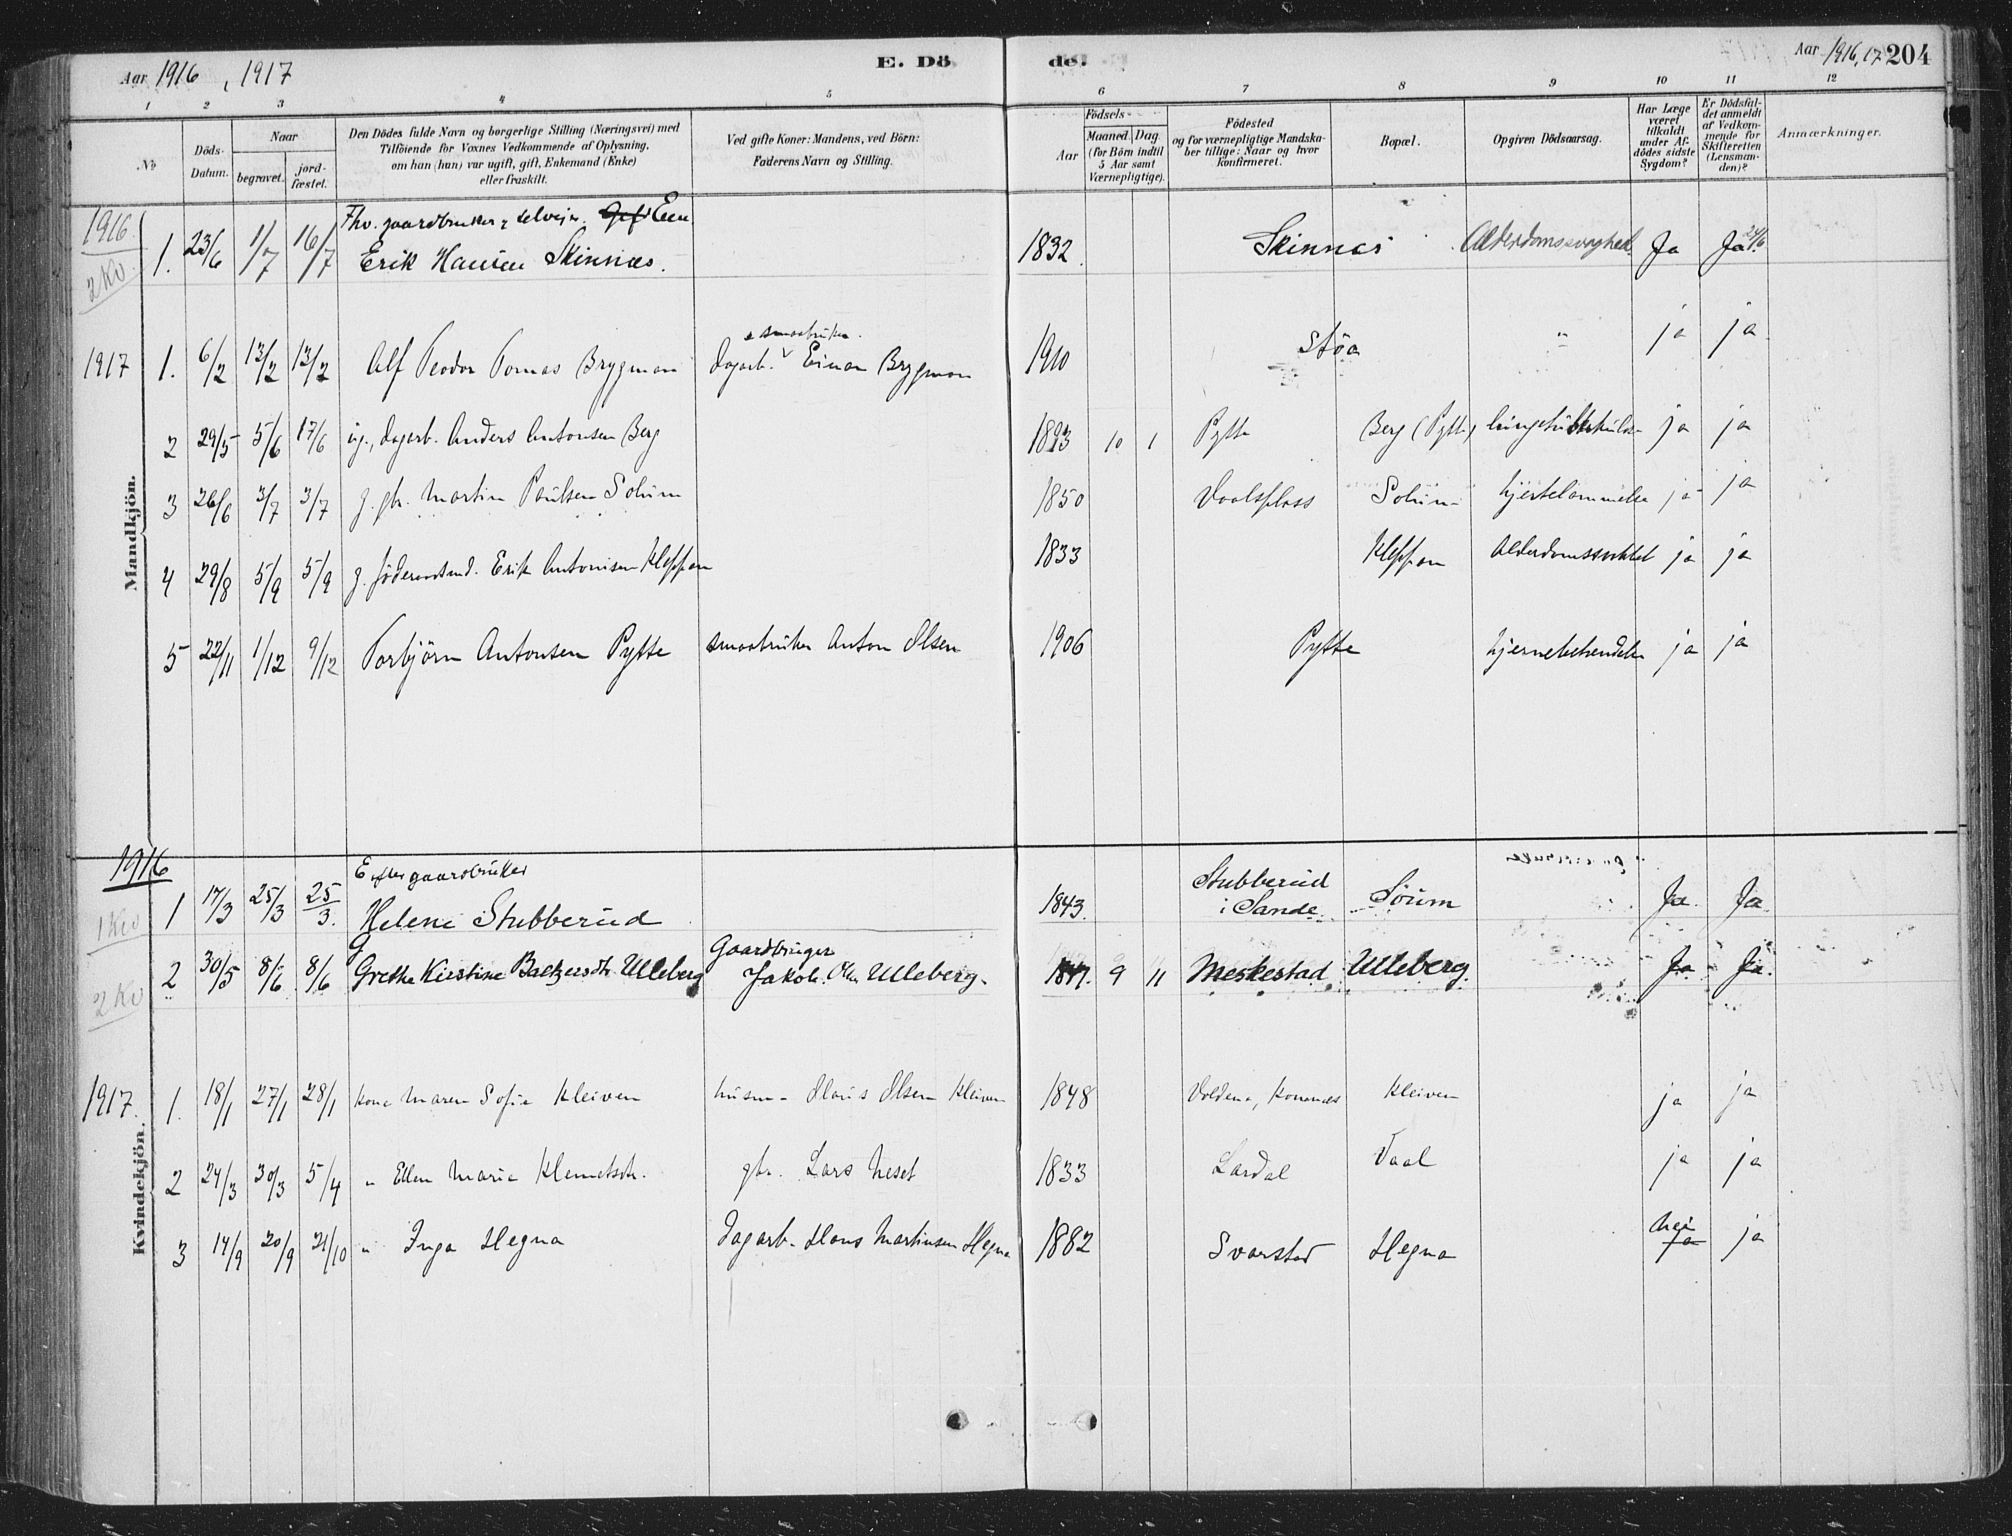 Aar 1916, 1917
E. Dö
de.
Aar 1916, 17 204
1 2 3 4 5 6 7 8 9 10 11 12
No
Döds-Datum.
Naar
begravet.
jordfæstet.
Den Dödes fulde Navn og borgerlige Stilling (Næringsvei) med
Tilföiende for Voxnes Vedkommende af Oplysning,
om han (hun) var ugift, gift, Enkemand (Enke)
eller fraskilt.
Ved gifte Koner: Mandens, ved Börn:
Faderens Navn og Stilling.
Födsels-
Aar
Maaned.
Dag
(for Börn indtil
5 Aar samt
Værnepligtige).
Födested
og for værnepligtige Mandska-
ber tillige: Naar og hvor
konfirmeret.
Bopæl.
Opgiven Dödsaarsag.
Har Læge
været
tilkaldt
under Af-
dödes sidste
Sygdom?
Er Dödsfal-
det anmeldt
af Vedkom-
mende for
Skifteretten
(Lensman-
den)?
Anmærkninger.
Mandkjön.
1916
2 Kv.
Fhv. gaardbruker, selveier
1. 23/6 1/7 16/7 Erik Hansen Skinnæs. 1832 Skinnæs Alderdomssvaghed Ja Ja 24/6
e smaabruker
1917 1. 6/2 13/2 13/2 Alf Teodor Tomas Brygman Dagarb. Einar Brygman 1910 Støa " ja ja
2 29/5 5/6 17/6 ug., dagarb. Anders Antonsen Berg 1893 10 1 Pytte Berg (Pytte) ja ja
3 26/6 3/7 3/7 g. gbr. Martin Paulsen Solum 1850 Vaalsplass Solum hjertelammelse ja ja
4 29/8 5/9 5/9 g. föderaadsmd. Erik Antonisen Kleppan 1833 Kleppan ja ja
5 22/11 1/12 9/12 Torbjörn Antonsen Pytte smaabruker Anton Olsen 1906 Pytte hjernebetændelse ja ja
Kvindekjön.
1916
1 Kv
gaardbruker
1 17/3 25/3 25/3. Helene Stubberud 1843. Stubberud i Sande Sörum Ja. Ja
G
Gaardbruger
2 30/5 8/6 8/6 Grethe Kirstine Baltzersdtr. Ulleberg Jakob Ulleberg. 9 11 Meskestad Ulleberg. Ja Ja.
2 Kv
1917. 1. 18/1 27/1 28/1 kone Maren Sofie Kleiven husm. Olsen Kleiven 1848 Kleiven ja ja
2 24/3 30/3 5/4 " Ellen Marie Klemetsdtr. gbr. Lars Neset 1833 Lardal Vaal ja ja
3 14/9 20/9 21/10 " Inga Hegna Dagarb. Hans Martinsen Hegna 1882 Svarstad Hegna nei ja ja